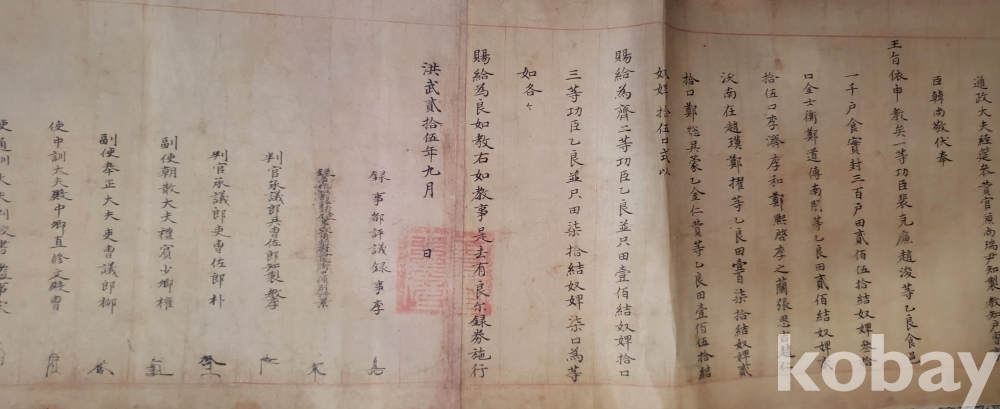 通政大夫經筵參贊官
臣韓尚敬伏奉
王旨依申教矣一等功臣裴克廉趙浚等乙良食邑
一千戶食實封三百戶田貳佰伍拾結奴婢叁拾
口金士衡鄭道傳南誾等乙良田貳佰結奴婢
拾伍口李濟李和鄭熙啓李之蘭張思吉趙仁
沃南在趙璞鄭擢等乙良田壹百柒拾結奴婢貳
拾口鄭摠其蒙乙金仁贊等乙良田壹佰伍拾結
奴婢拾伍口式以
賜給為齊二等功臣乙良並只田壹佰結奴婢拾口
三等功臣乙良並只田柒拾結奴婢柒口為等
如各々
賜給為良如教右如教事是去有良尔錄券施行
洪武貳拾伍年九月 日
錄事都評議錄事李
判官承議郎兵曹佐郎知製教李
判官承議郎吏曹佐郎朴
副使朝散大夫禮賓少卿權
副使奉正大夫吏曹議郎柳
使中訓大夫殿中卿直修文殿曹
kobay